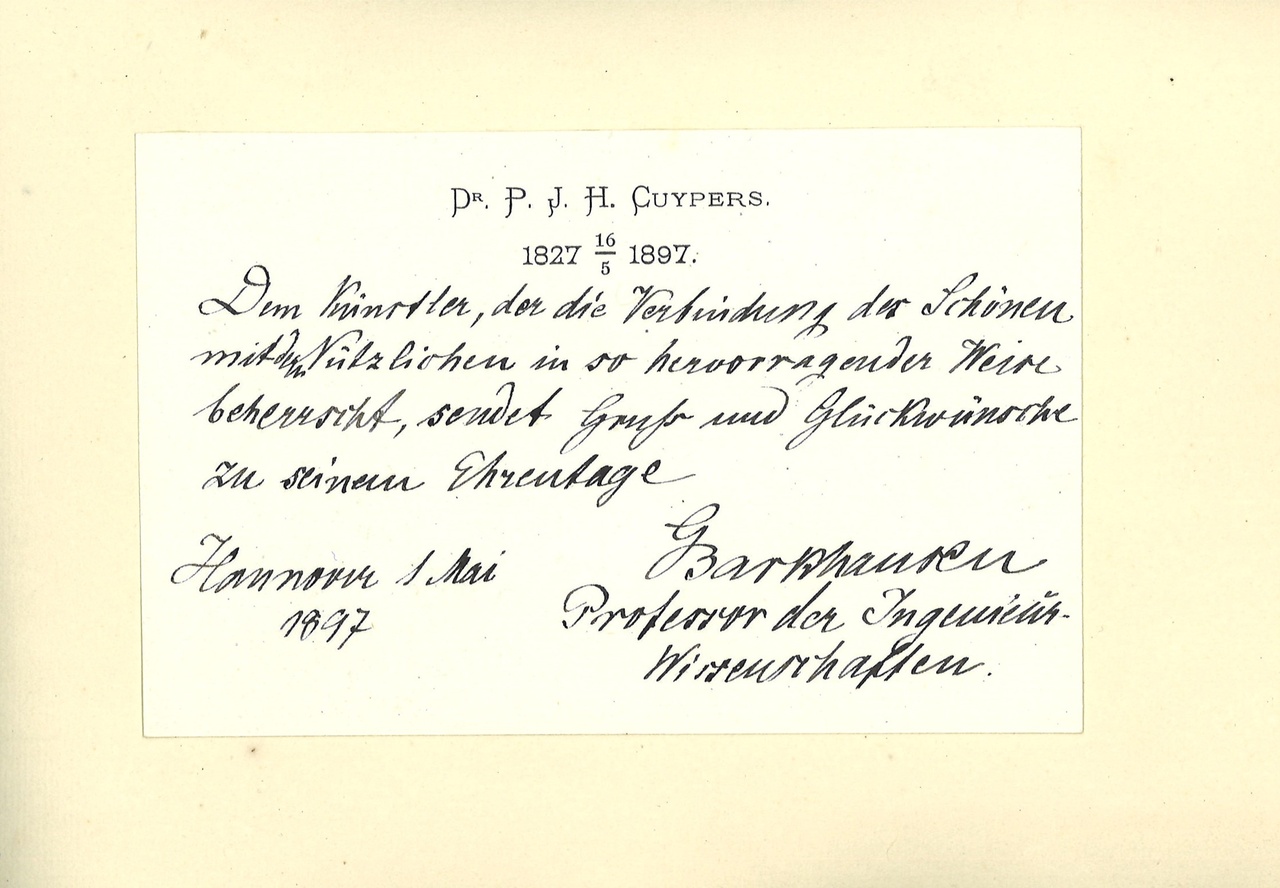 DR. P. J. H. CUYPERS.
1827 16/5 1897.
Dem Künstler, der die Verbindung des Schönen
mit dem Nützlichen in so hervorragender Weise
beherrscht, sendet Gruß und Glückwünsche
zu seinem Ehrentage
Hannover 1 Mai
1897
GBarkhausen
Professor der Ingenieur-
Wissenschaften.